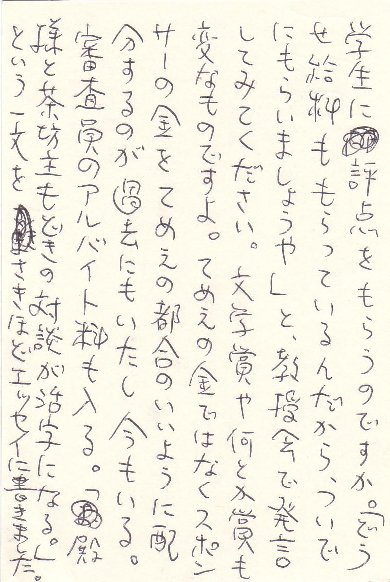 学生に評点をもらうのですか。「どう
せ給料ももらっているんだから、ついで
にもらいましょうや」と、教授会で発言
してみてください。文学賞や何とか賞も
変なものですよ。てめえの金ではなくスポン
サーの金をてめえの都合のいいように配
分するのが過去にもいたし今もいる。
審査員のアルバイト料も入る。「殿
様と茶坊主もどきの対談が活字になる。」
という一文をさきほどエッセイに書きました。